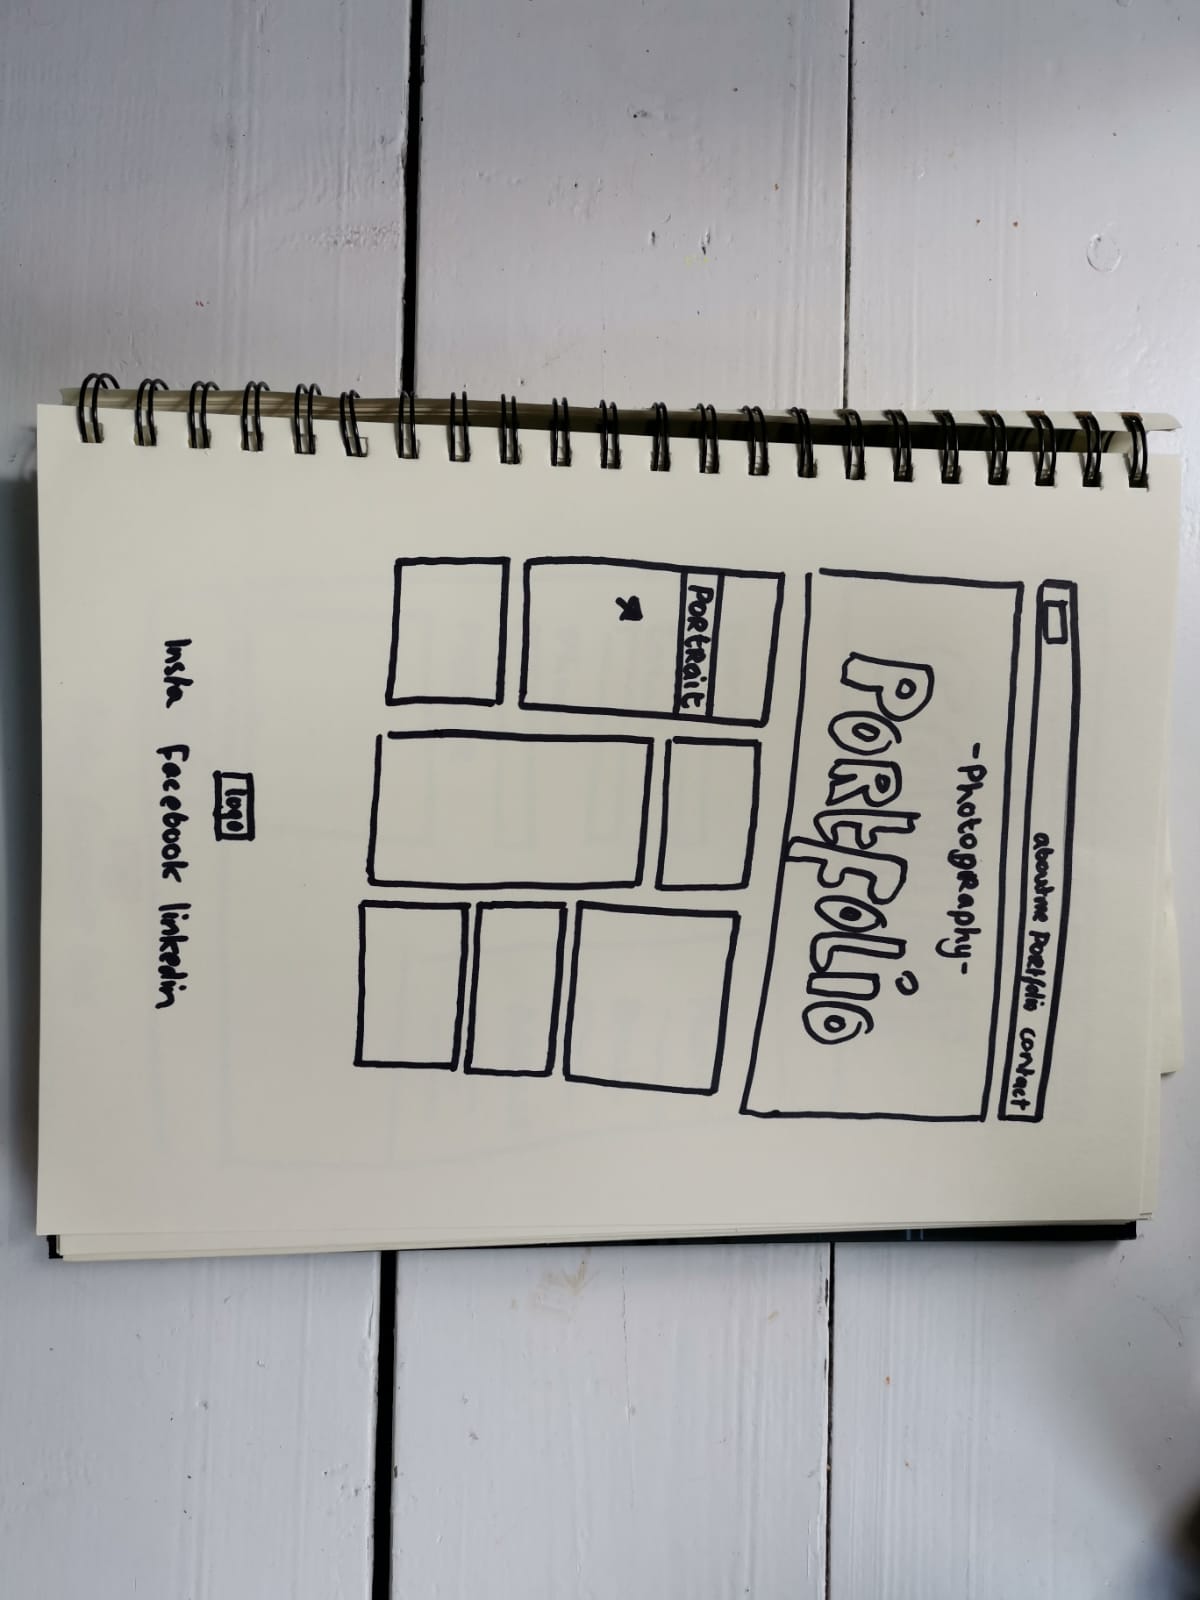 aboutme Portfolio contact
-Photography-
Portfolio
Portrait
logo
Insta Facebook linkedin